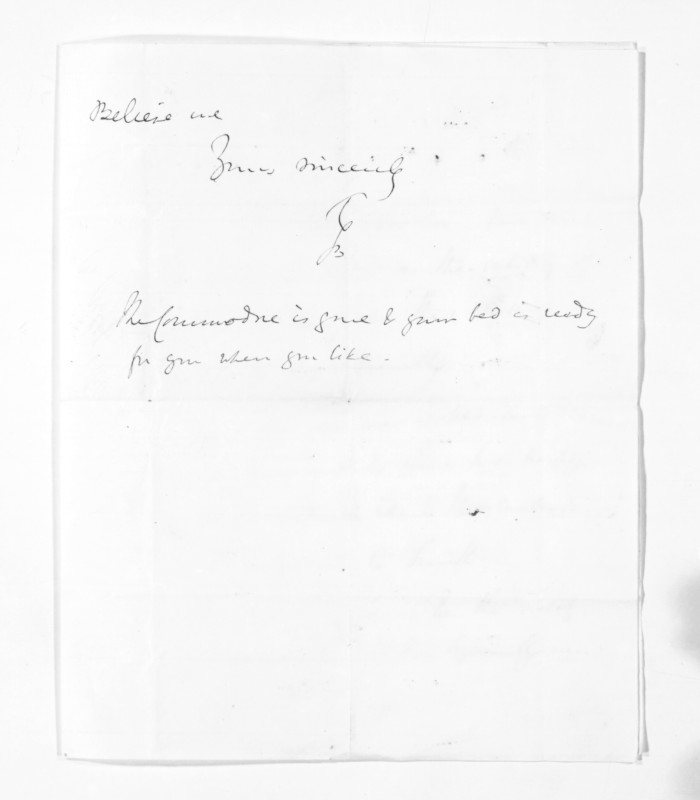 Believe me
Yours sincerely
The Commodore is gone & your bed is ready
for you when you like.